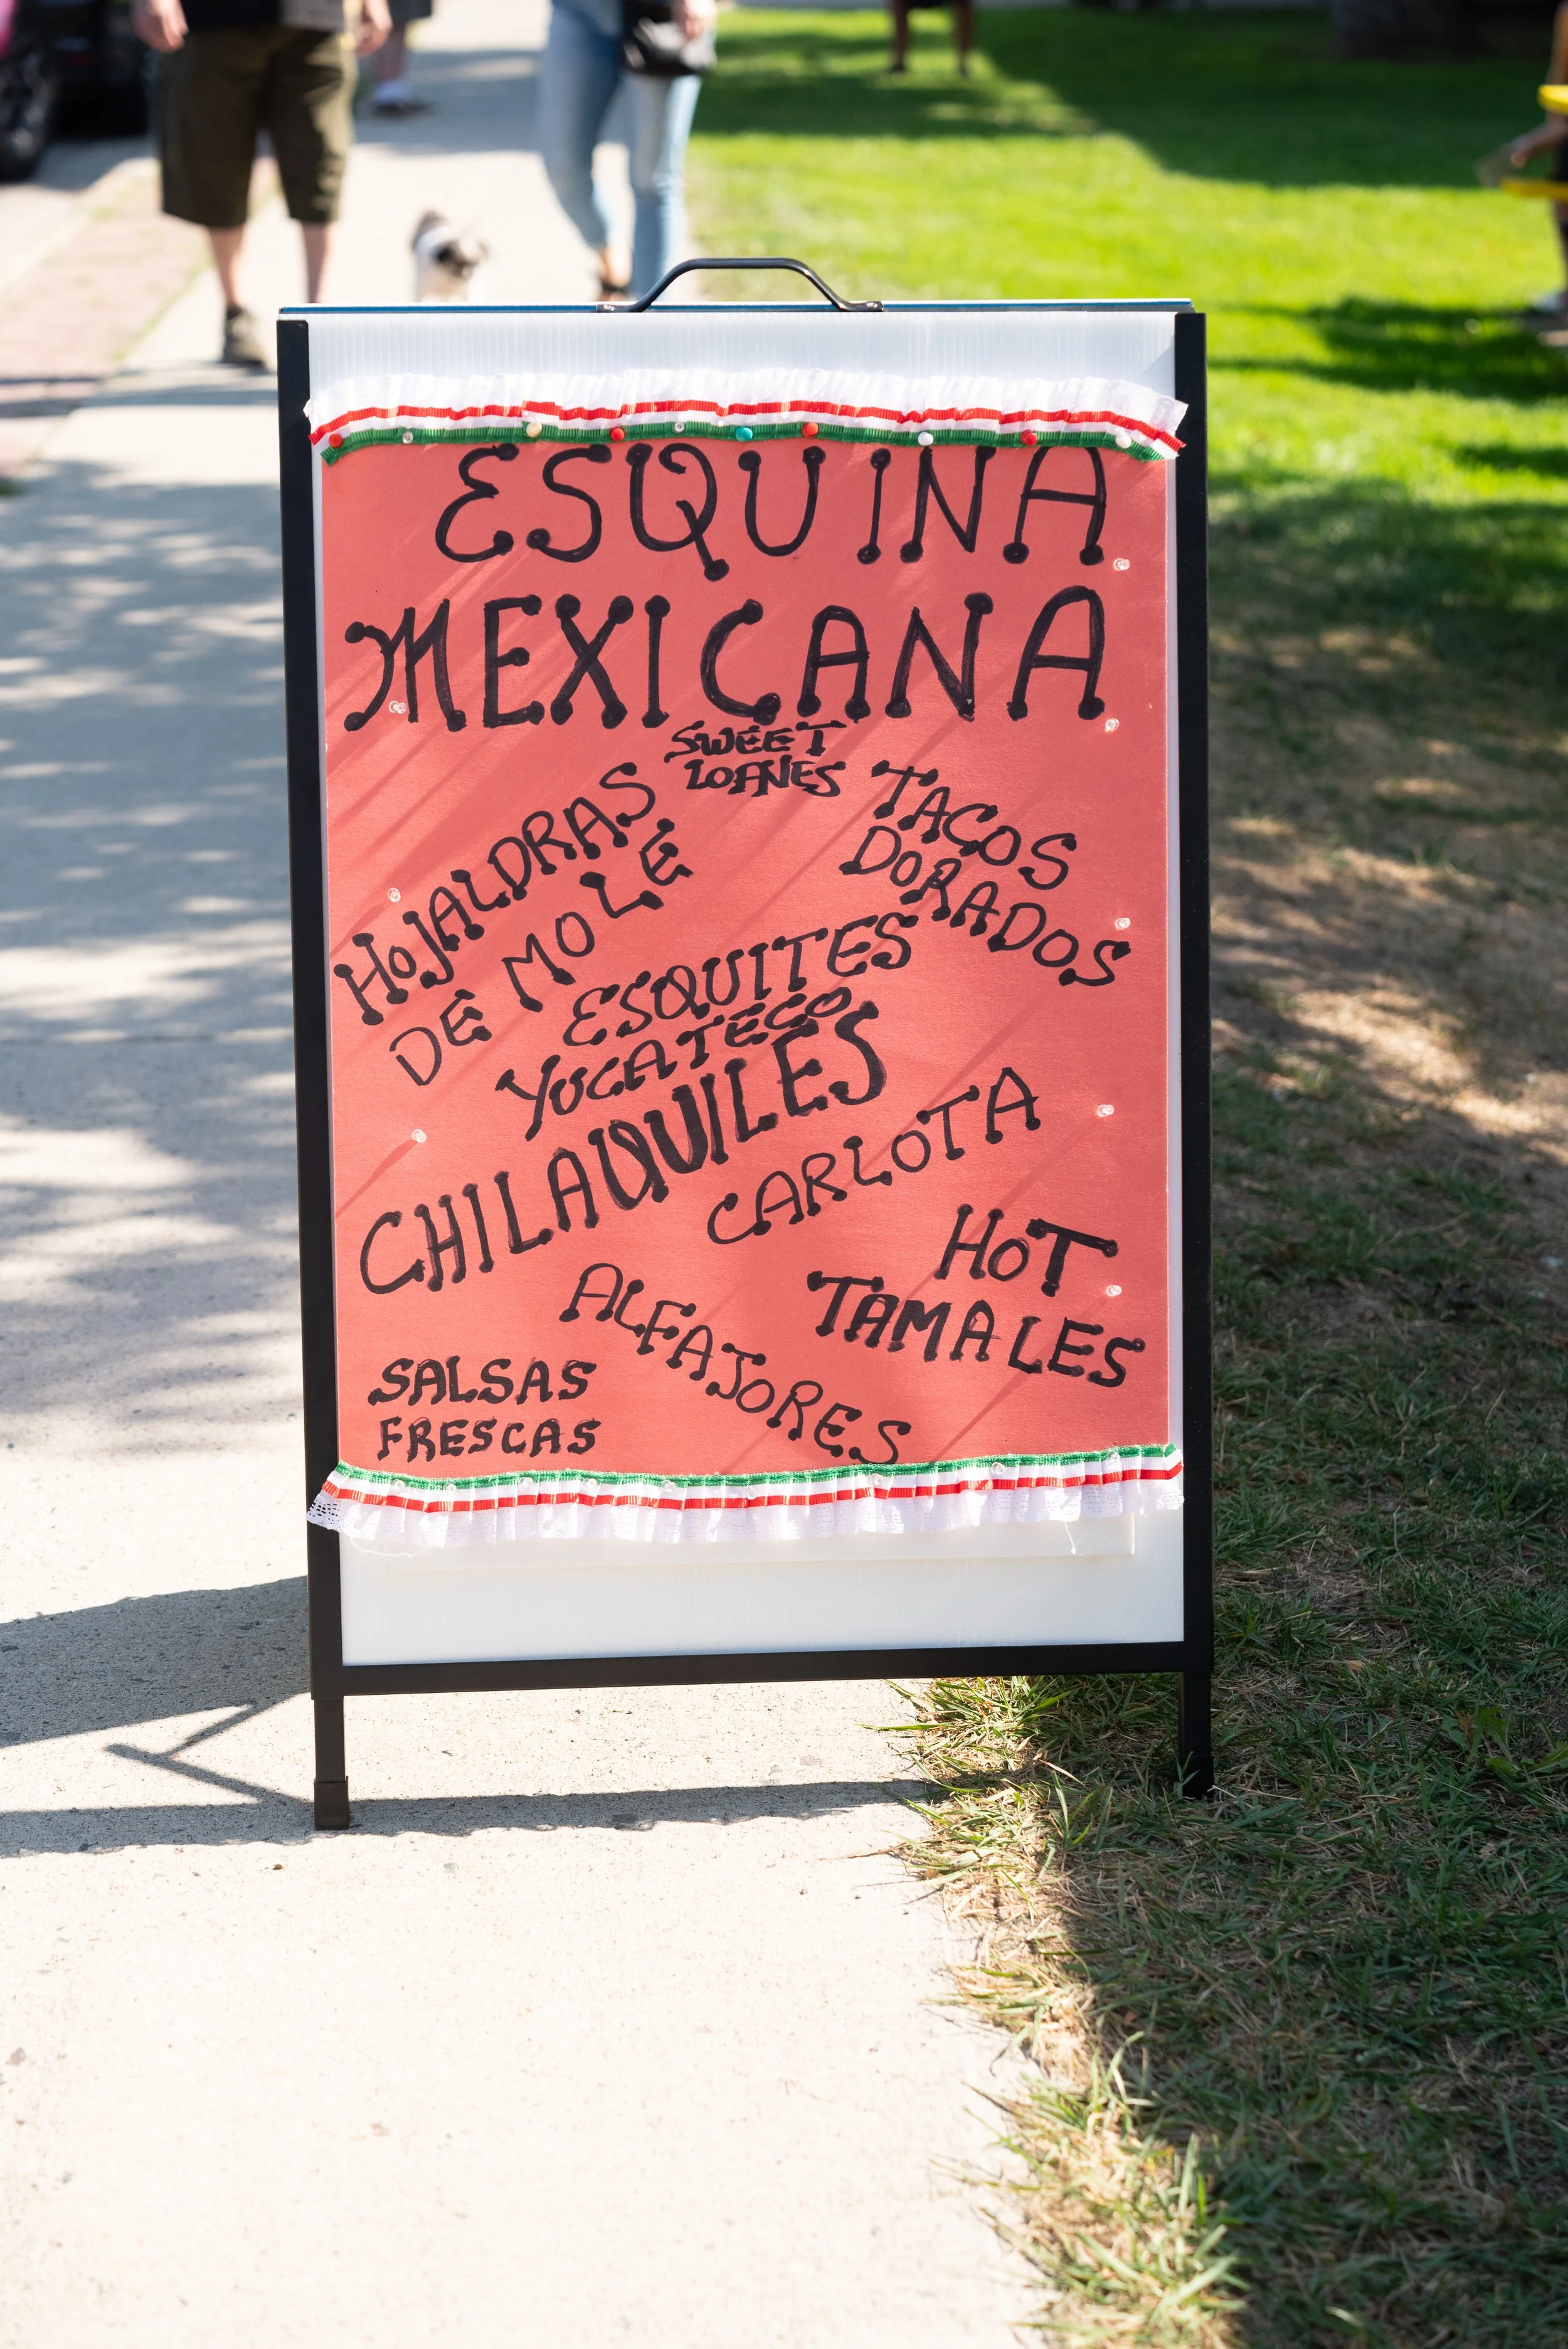 ESQUINA
MEXICANA
SWEET
LOANES
HOJALDRAS
DE MOLE
TACOS
DORADOS
ESQUITES
YUCATECO
CHILAQUILES
CARLOTA
HOT
TAMALES
ALFAJORES
SALSAS
FRESCAS